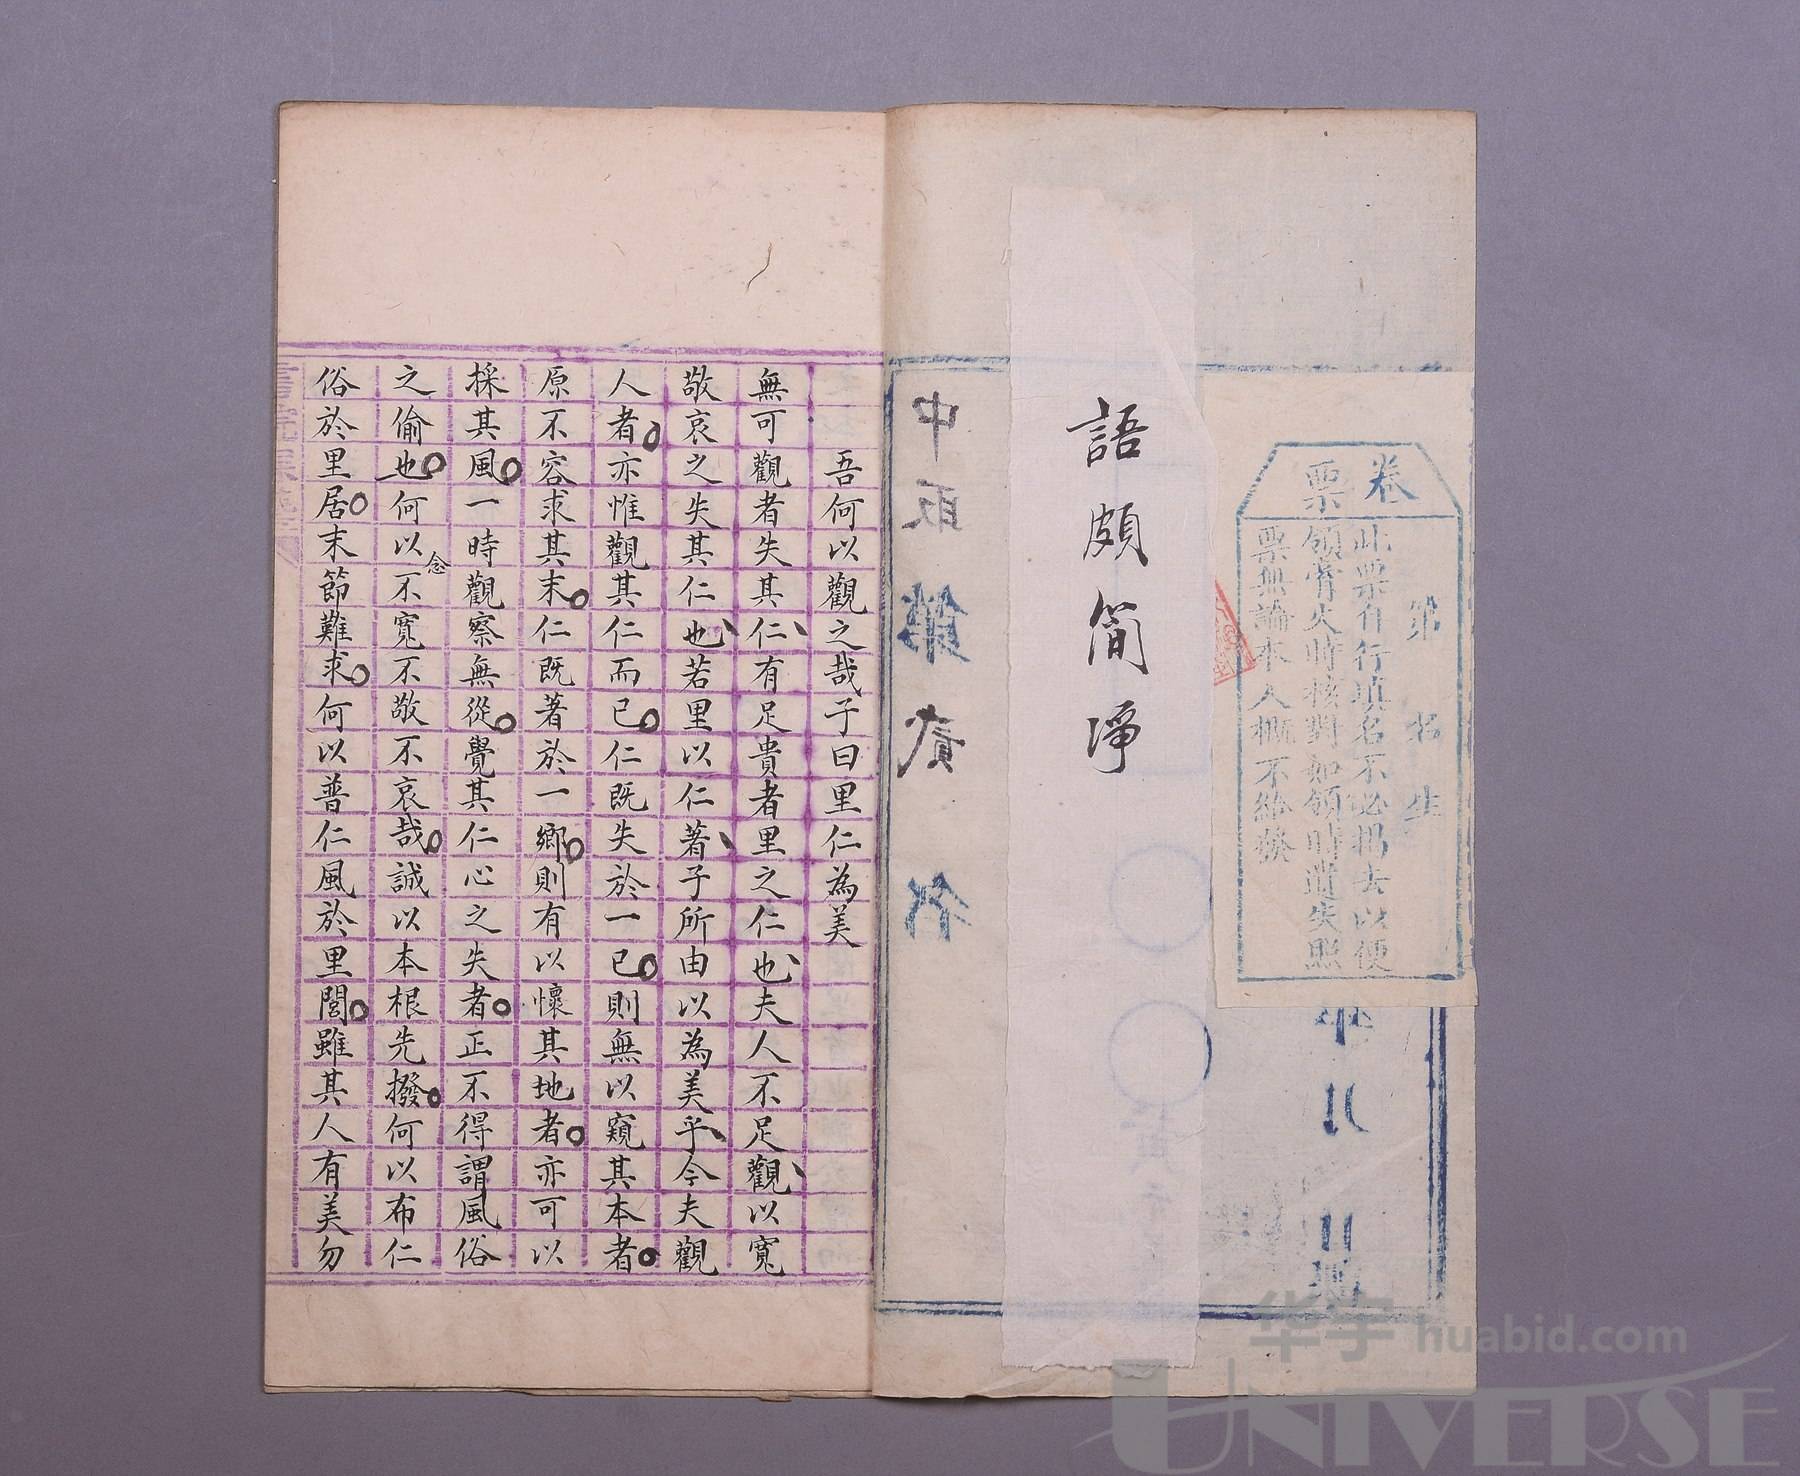 卷
票
第 名 生
此票自行填名不必揭去以便
領膏火時核對如領時遺失照
票無論本人概不給發
語頗簡淨
中取第貳名
吾何以觀之哉子曰里仁為美
無可觀者失其仁有足貴者里之仁也夫人不足觀以寬
敬哀之失其仁也若里以仁著子所由以為美乎今夫觀
人者亦惟觀其仁而已仁既失於一已則無以窺其本者
原不容求其末仁既著於一鄉則有以懷其地者亦可以
採其風一時觀察無從覺其仁心之失者正不得謂風俗
之偷也何以不寬不敬不哀哉誠以本根先撥何以布仁
念
俗於里居末節難求何以普仁風於里閭雖其人有美勿
华宇 huabid.com
UNIVERSE